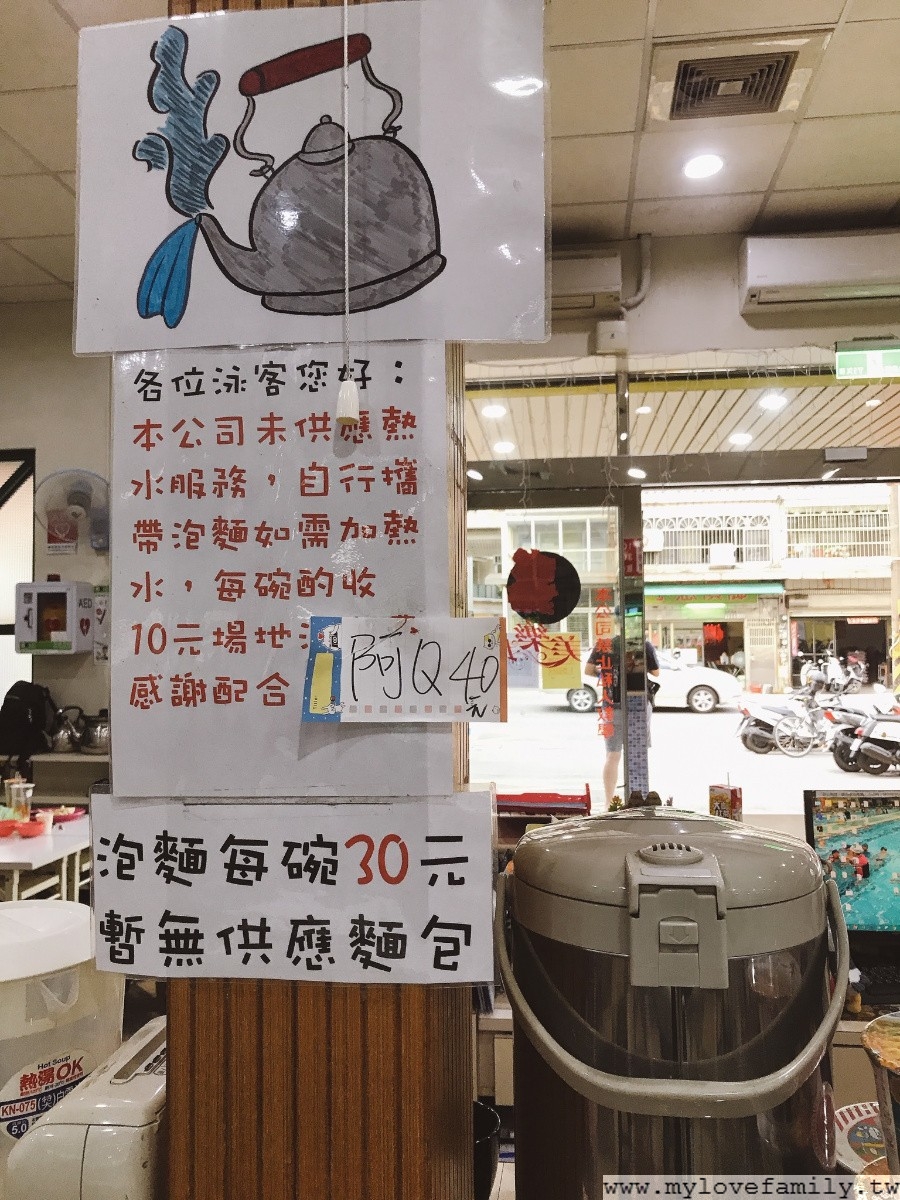 各位泳客您好：
本公司未供應熱
水服務，自行攜
帶泡麵如需加熱
水，每碗酌收
10元場地
感謝配合
阿Q 40元
泡麵每碗30元
暫無供應麵包
AED
Hot Soup
熱湯OK
KN-075(特大)
5.0
www.mylovefamily.tw